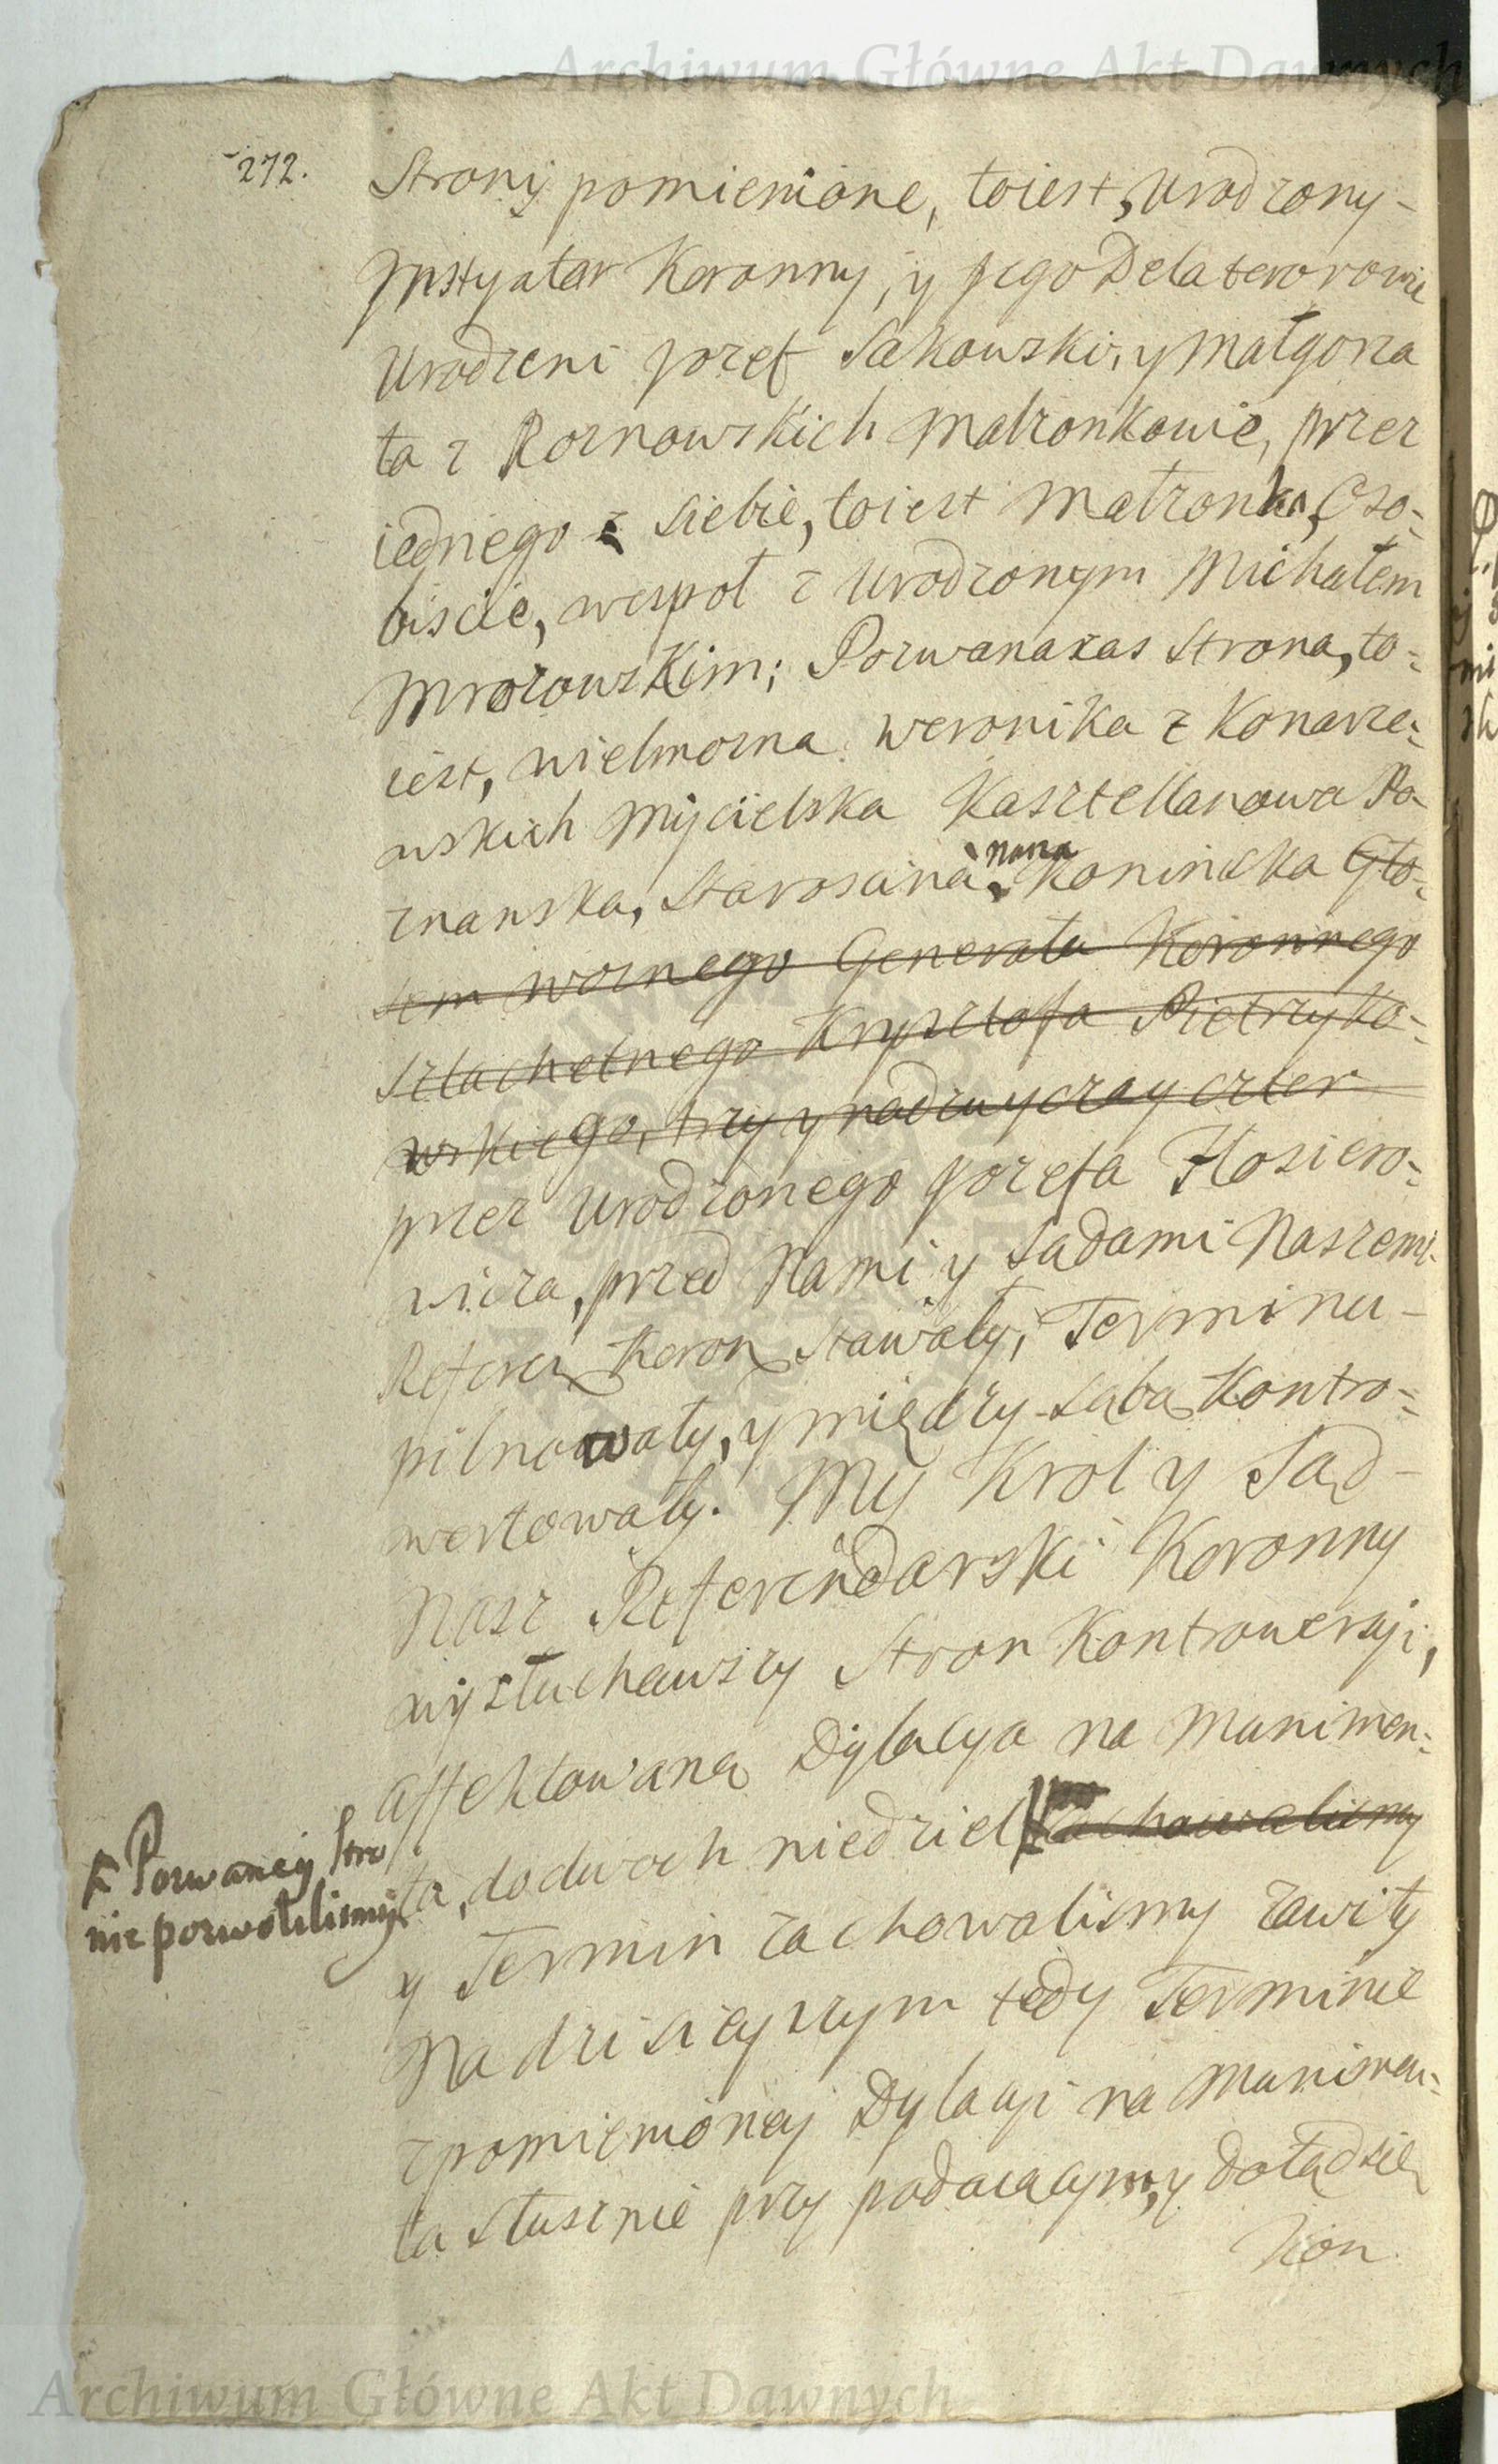 Archiwum Główne Akt Dawnych
272.
Strony pomienione, toiest, Urodzony-
Jnstygator Koronny, y Jego Delatorowie
Urodzeni Jozef Sakowski, y Małgorza
ta z Roznowskich Małzonkowie, przez
iednego z siebie, toiest Małzonka, Oso=
biscie, wespoł z Urodzonym Michałem
Mrozowskim; Pozwana zas Strona, to=
iest, Wielmozna Weronika z Konarze=
wskich Mycielska Kasztellanowa Po=
znanska, Starościna nana Koninska Gło=
sem woznego Generała Koronnego
Szlachetnego Krysztofa Pietrzyko=
wskiego, trzy y nadzwyczay czter
przez Urodzonego Jozefa Kosiero=
wicza, przed Nami y Sądami Naszemi
Referen Koron stawały, Terminu-
pilnowały, y między sobą Kontro=
wertowały. My Krol y Sąd-
Nasz Referendarski Koronny
wysłuchawszy Stron Kontrowersyi,
affektowaną Dylacyą na Munimen=
ta, do dwoch niedziel zachowalismy
K Pozwaney Stro
nie pozwolilismy
y Termin zachowalismy zawity
Na dzisieyszym tedy Terminie
z pomienioney Dylacyi na Munimen=
ta słusznie przypadaiącym, y dotąd się
kon
Archiwum Główne Akt Dawnych